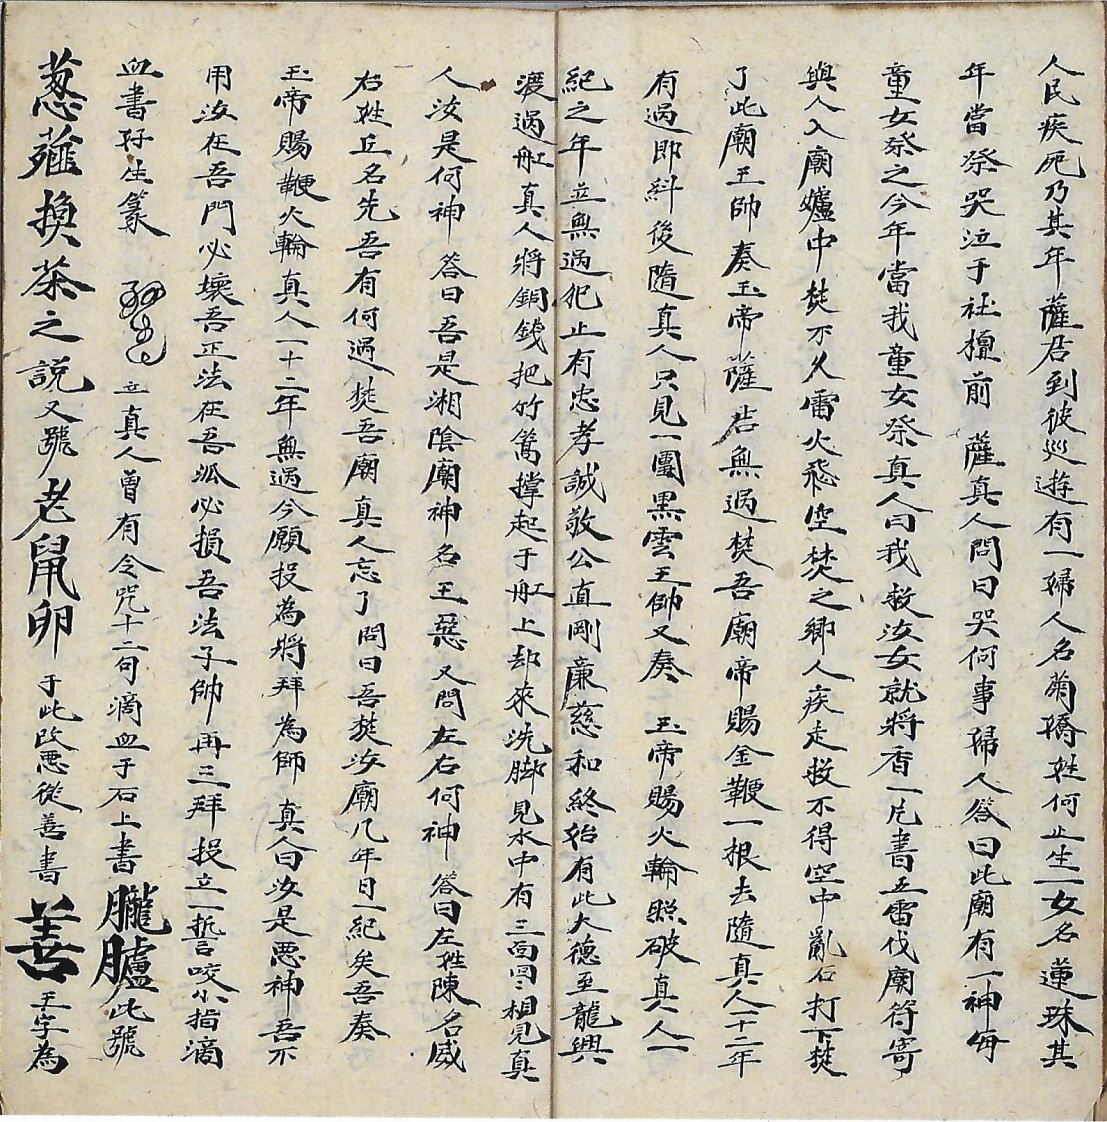 人民疾死乃其年薩君到彼巡遊有一婦人名蘭嬌姓何止生一女名蓮珠其
年當祭哭泣于社檀前薩真人問曰哭何事婦人答曰此廟有一神每
童女祭之今年當我童女祭真人曰我救汝女就將香一片書五雷伐廟符寄
與人入廟爐中焚不久雷火飛空焚之鄉人疾走救不得空中亂石打下焚
了此廟王帥奏玉帝薩君無過焚吾廟帝賜金鞭一根去隨真人十二年
有過即糾後隨真人只見一團黑雲王帥又奏 玉帝賜火輪照破真人一
紀之年並無過犯止有忠孝誠敬公直剛廉慈和終始有此大德至龍興
渡過舡真人將銅錢把竹篙撑起于舡上却來洗脚見水中有三面囬〻相見真
人汝是何神答曰吾是湘陰廟神名王惡又問左右何神答曰左姓陳名威
右姓丘名先吾有何過焚吾廟真人忘了問曰吾焚汝廟几年曰一紀矣吾奏
玉帝賜鞭火輪真人一十二年無過今願投為將拜為師 真人曰汝是悪神吾不
用汝在吾門必壞吾正法在吾派必損吾法子帥再三拜投立一誓咬小指滴
血書符生篆 立真人曾有令咒十二句滴血于石上書朧臚此號
葱薤換茶之説又號老鼠卵于此改悪從善書善王字為